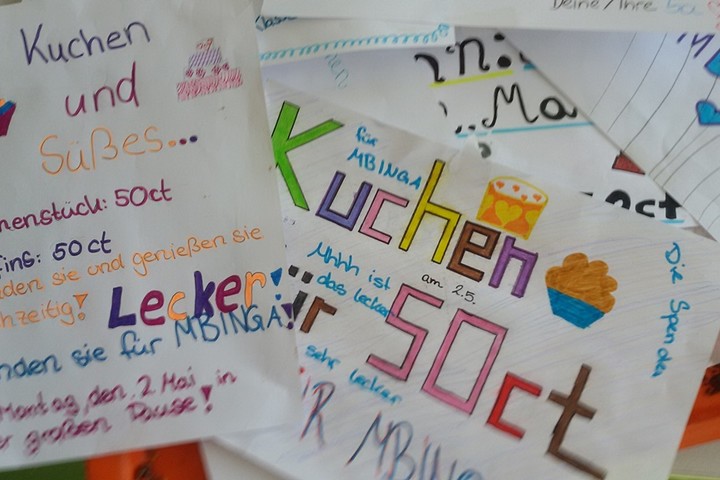 Kuchen
und
Süßes...
nenstück: 50ct
fins: 50 ct
den sie und genießen sie
hzeitig!
Lecker!
nden sie für MBINGA!
Montag, den 2. Mai in
großen Pause!
Deine/Ihre
in:
..Ma
ct
für
MBINGA
Kuchen
am 2.5.
Mhhh ist
das lecker
für
50ct
sehr lecker
MBING
Die Spenden